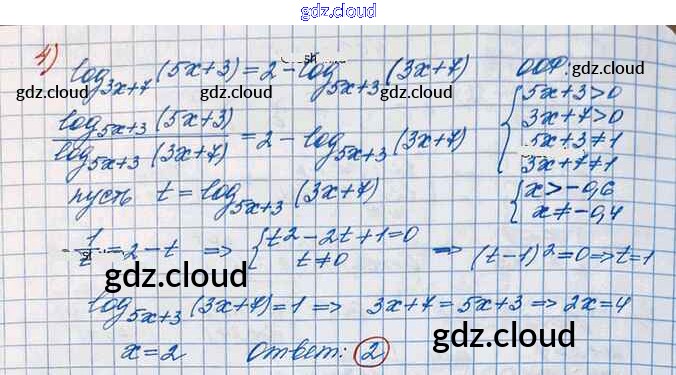 gdz.cloud
4) log_{3x+7} (5x+3) = 2 - log_{5x+3} (3x+7) ООФ:
gdz.cloud gdz.cloud gdz.cloud gdz.cloud
5x+3>0
3x+7>0
5x+3≠1
3x+7≠1
log_{5x+3} (5x+3) / log_{5x+3} (3x+7) = 2 - log_{5x+3} (3x+7)
пусть t = log_{5x+3} (3x+7)
x>-0,6
x≠-0,4
1/t = 2 - t => { t² - 2t + 1 = 0
t ≠ 0 => (t-1)² = 0 => t = 1
gdz.cloud gdz.cloud
log_{5x+3} (3x+7) = 1 => 3x+7 = 5x+3 => 2x = 4
x = 2 Ответ: 2
gdz.cloud